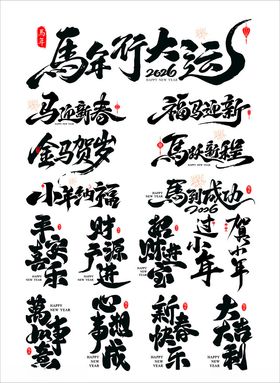 馬年
馬年行大运
2026
HAPPY NEW YEAR
马迎新春
HAPPY NEW YEAR
福马迎新
金马贺岁
馬跃新程
小年纳福
馬到成功
2026
平安喜乐
HAPPY NEW YEAR
财源广进
招财进宝
HAPPY NEW YEAR
过小年
贺小年
萬事如意
HAPPY NEW YEAR
心想事成
HAPPY NEW YEAR
新春快乐
HAPPY NEW YEAR
大吉大利